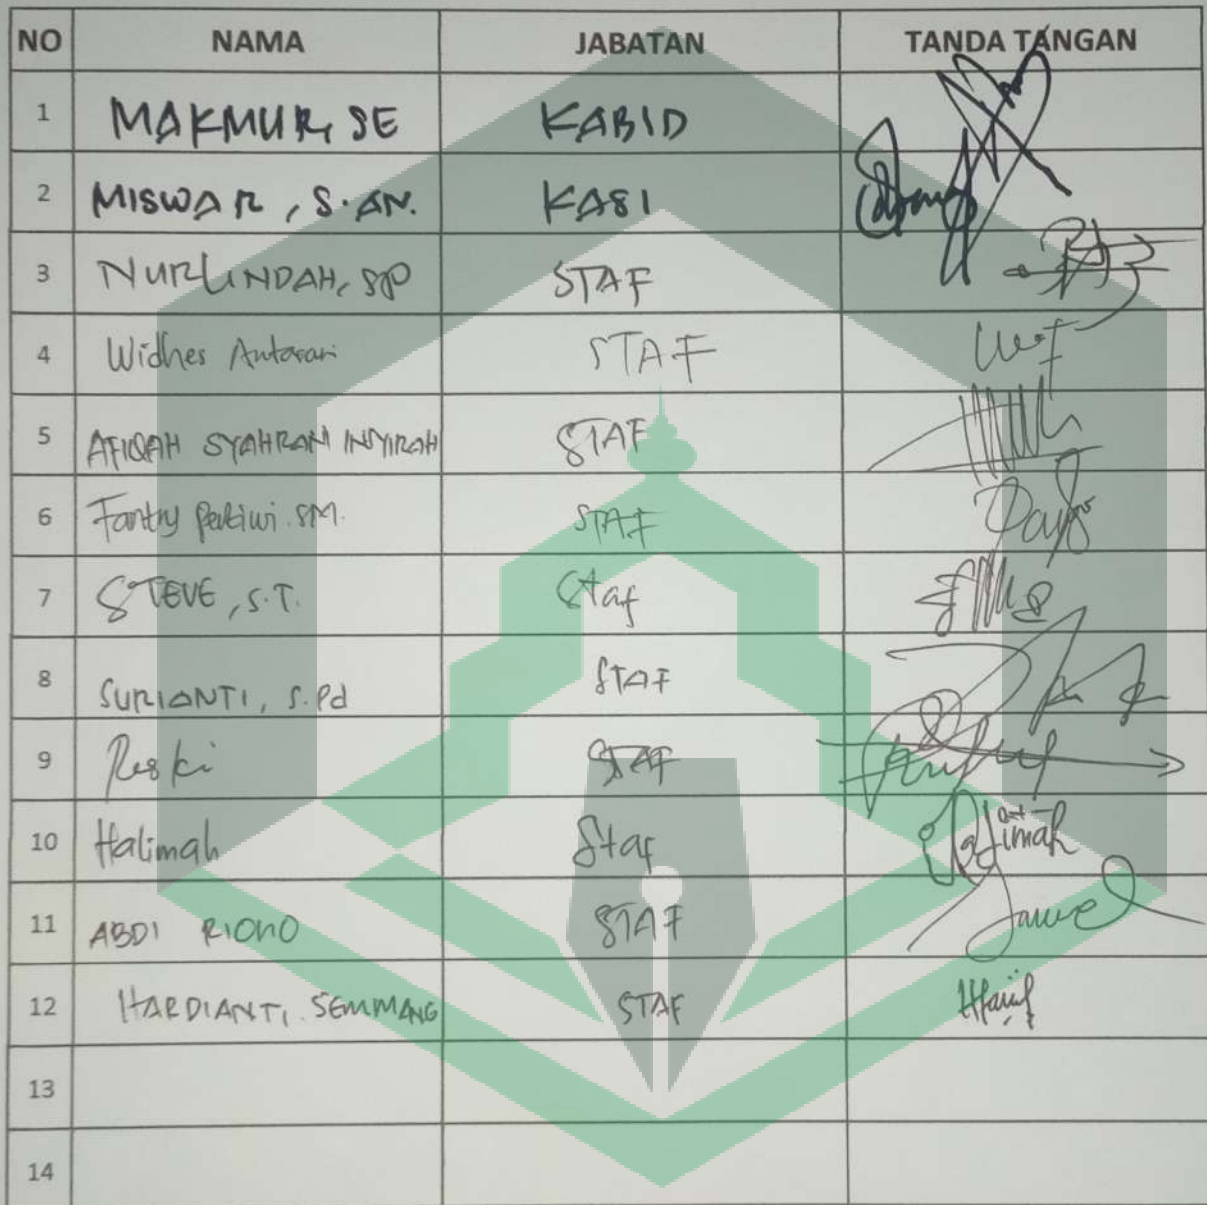 NO NAMA JABATAN TANDA TANGAN
1 MAKMUR, SE KABID
2 MISWAR, S.AN. KASI
3 NURLINDAH, SP STAF
4 Widhes Antarari STAF
5 AFIQAH SYAHRANI INSYIRAH STAF
6 Fantry Pertiwi. SM. STAF
7 STEVE, S.T. Staf
8 SURIANTI, S.Pd STAF
9 Reski STAF
10 Halimah Staf Halimah
11 ABDI RIONO STAF
12 HARDIANTI. SEMMANG STAF
13
14